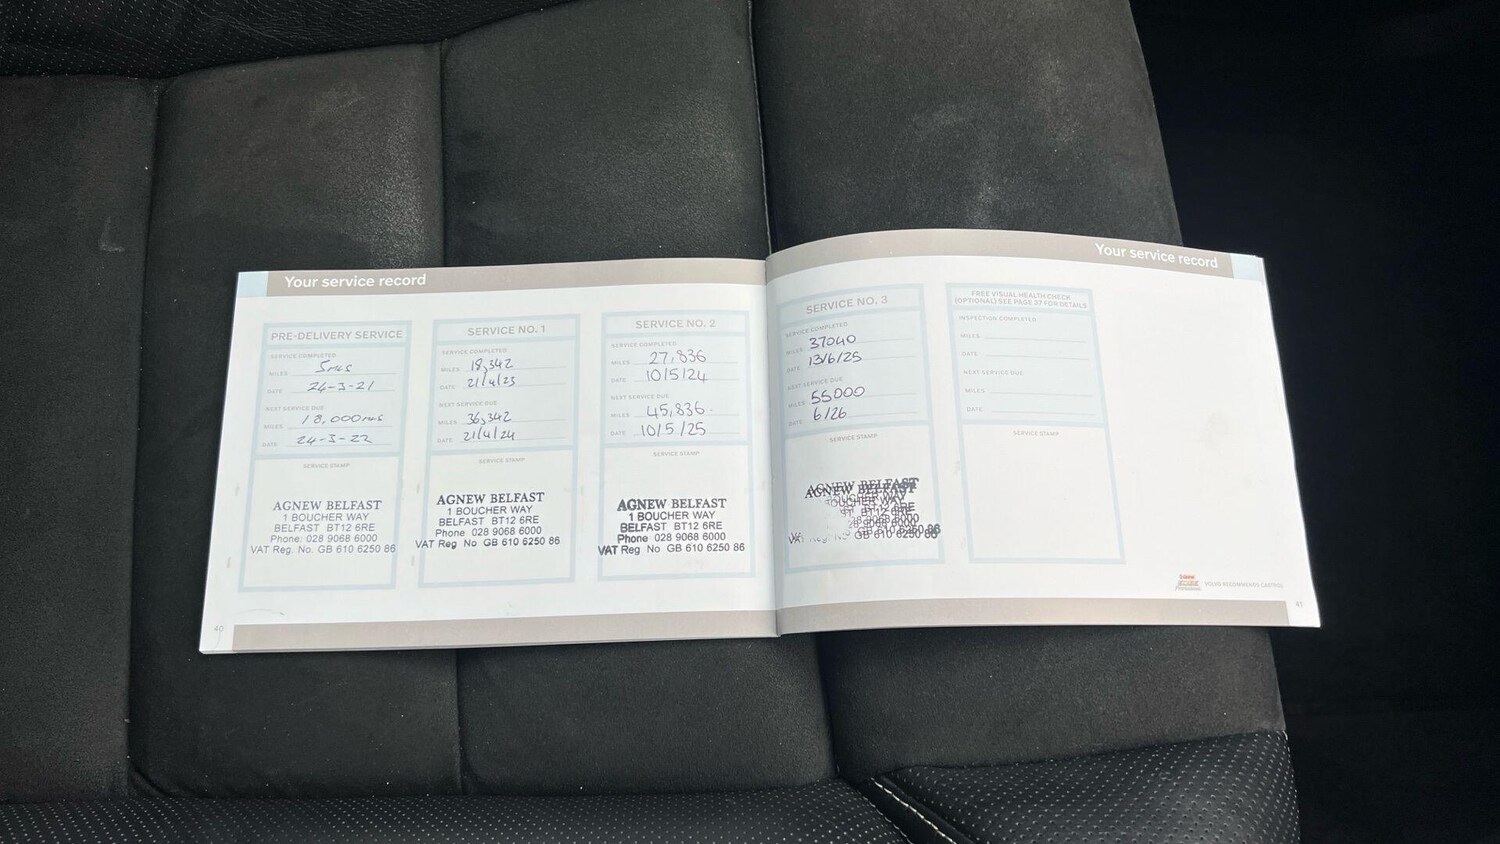 Your service record
PRE-DELIVERY SERVICE
SERVICE COMPLETED
MILES 5mls
DATE 24-3-21
NEXT SERVICE DUE
MILES 18,000mls
DATE 24-3-22
SERVICE STAMP
AGNEW BELFAST
1 BOUCHER WAY
BELFAST BT12 6RE
Phone: 028 9068 6000
VAT Reg. No. GB 610 6250 86
40
SERVICE NO. 1
SERVICE COMPLETED
MILES 18,342
DATE 21/4/23
NEXT SERVICE DUE
MILES 36,342
DATE 21/4/24
SERVICE STAMP
AGNEW BELFAST
1 BOUCHER WAY
BELFAST BT12 6RE
Phone 028 9068 6000
VAT Reg No GB 610 6250 86
SERVICE NO. 2
SERVICE COMPLETED
MILES 27,836
DATE 10/5/24
NEXT SERVICE DUE
MILES 45,836
DATE 10/5/25
SERVICE STAMP
AGNEW BELFAST
1 BOUCHER WAY
BELFAST BT12 6RE
Phone 028 9068 6000
VAT Reg No GB 610 6250 86
Your service record
SERVICE NO. 3
SERVICE COMPLETED
MILES 37040
DATE 13/6/25
NEXT SERVICE DUE
MILES 55000
DATE 6/26
SERVICE STAMP
AGNEW BELFAST
BOUCHER WAY
BT12 6RE
GB 610 6250 86
FREE VISUAL HEALTH CHECK
(OPTIONAL) SEE PAGE 37 FOR DETAILS
INSPECTION COMPLETED
MILES
DATE
NEXT SERVICE DUE
MILES
DATE
SERVICE STAMP
Castrol
VOLVO RECOMMENDS CASTROL
41